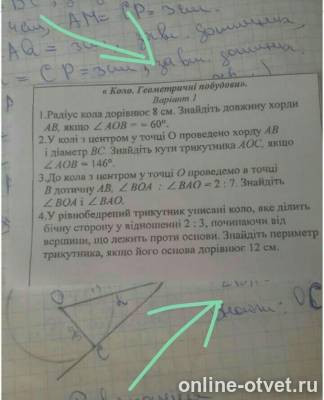 4см, АМ = СР = 3см.
= СР = 3см,
« Коло. Геометричні побудови».
Варіант 1
1.Радіус кола дорівнює 8 см. Знайдіть довжину хорди
АВ, якщо ∠ АОВ = = 60°.
2.У колі з центром у точці О проведено хорду АВ
і діаметр ВС. Знайдіть кути трикутника АОС, якщо
∠ АОВ = 146°.
3.До кола з центром у точці О проведемо в точці
В дотичну АВ, ∠ ВОА : ∠ ВАО = 2 : 7. Знайдіть
∠ ВОА і ∠ ВАО.
4.У рівнобедрений трикутник уписані коло, яке ділить
бічну сторону у відношенні 2 : 3, починаючи від
вершини, що лежить проти основи. Знайдіть периметр
трикутника, якщо його основа дорівнює 12 см.
online-otvet.ru